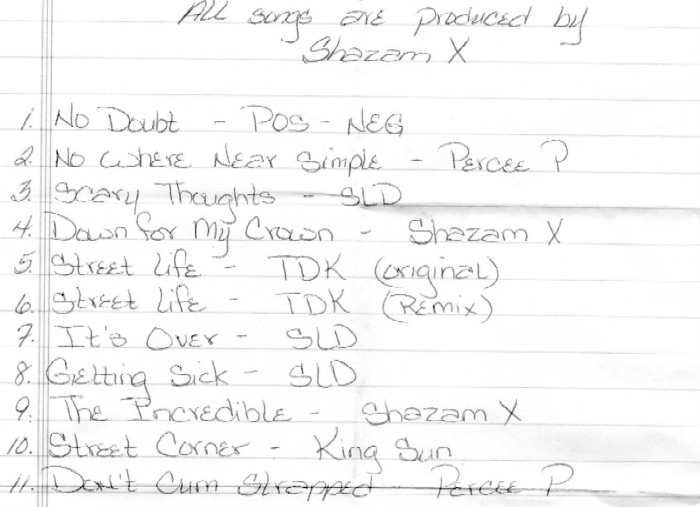 ALL songs are produced by
Shazam X
1. No Doubt - POS - NEG
2. No Where Near Simple - Percee P
3. Scary Thoughts - SLD
4. Down for My Crown - Shazam X
5. Street Life - TDK (original)
6. Street Life - TDK (Remix)
7. It's Over - SLD
8. Getting Sick - SLD
9. The Incredible - Shazam X
10. Street Corner - King Sun
11. Don't Cum Strapped - Percee P